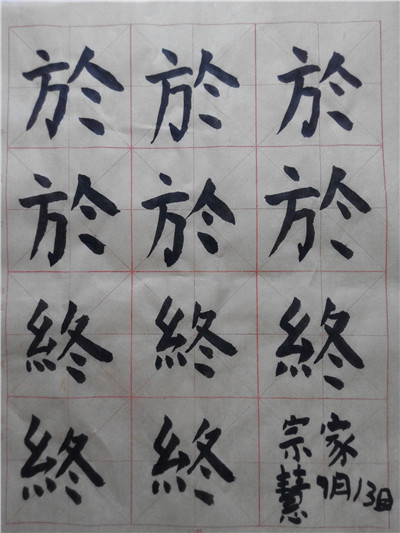 於於於
於於於
終終終
終終
宗慧
家
9月13日